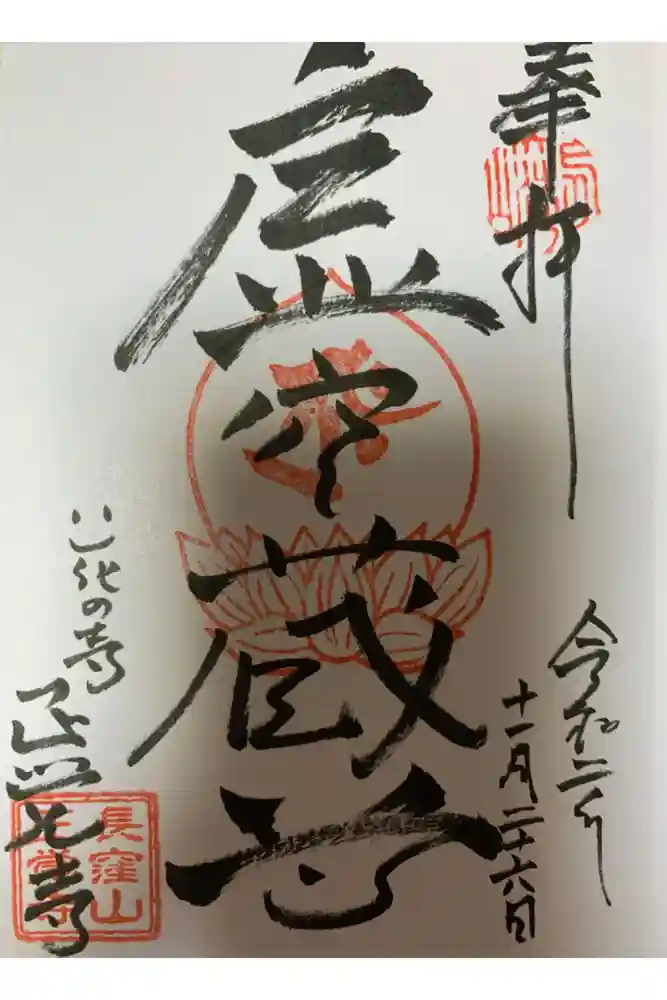 奉拝
虚空蔵尊
令和二年
十一月二十六日
花の寺
正覚寺
長窪山
正覚寺